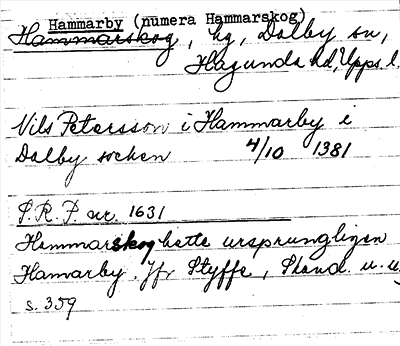 Hammarby (numera Hammarskog)
Hammarskog, hg, Dalby sn,
Hagunda hd, Upps. l.
Nils Petersson i Hammarby i
Dalby socken 4/10 1381
S.R.P. nr. 1631
Hammarskog hette ursprungligen
Hamarby. Jfr Styffe, Skand. u. u.,
s. 359